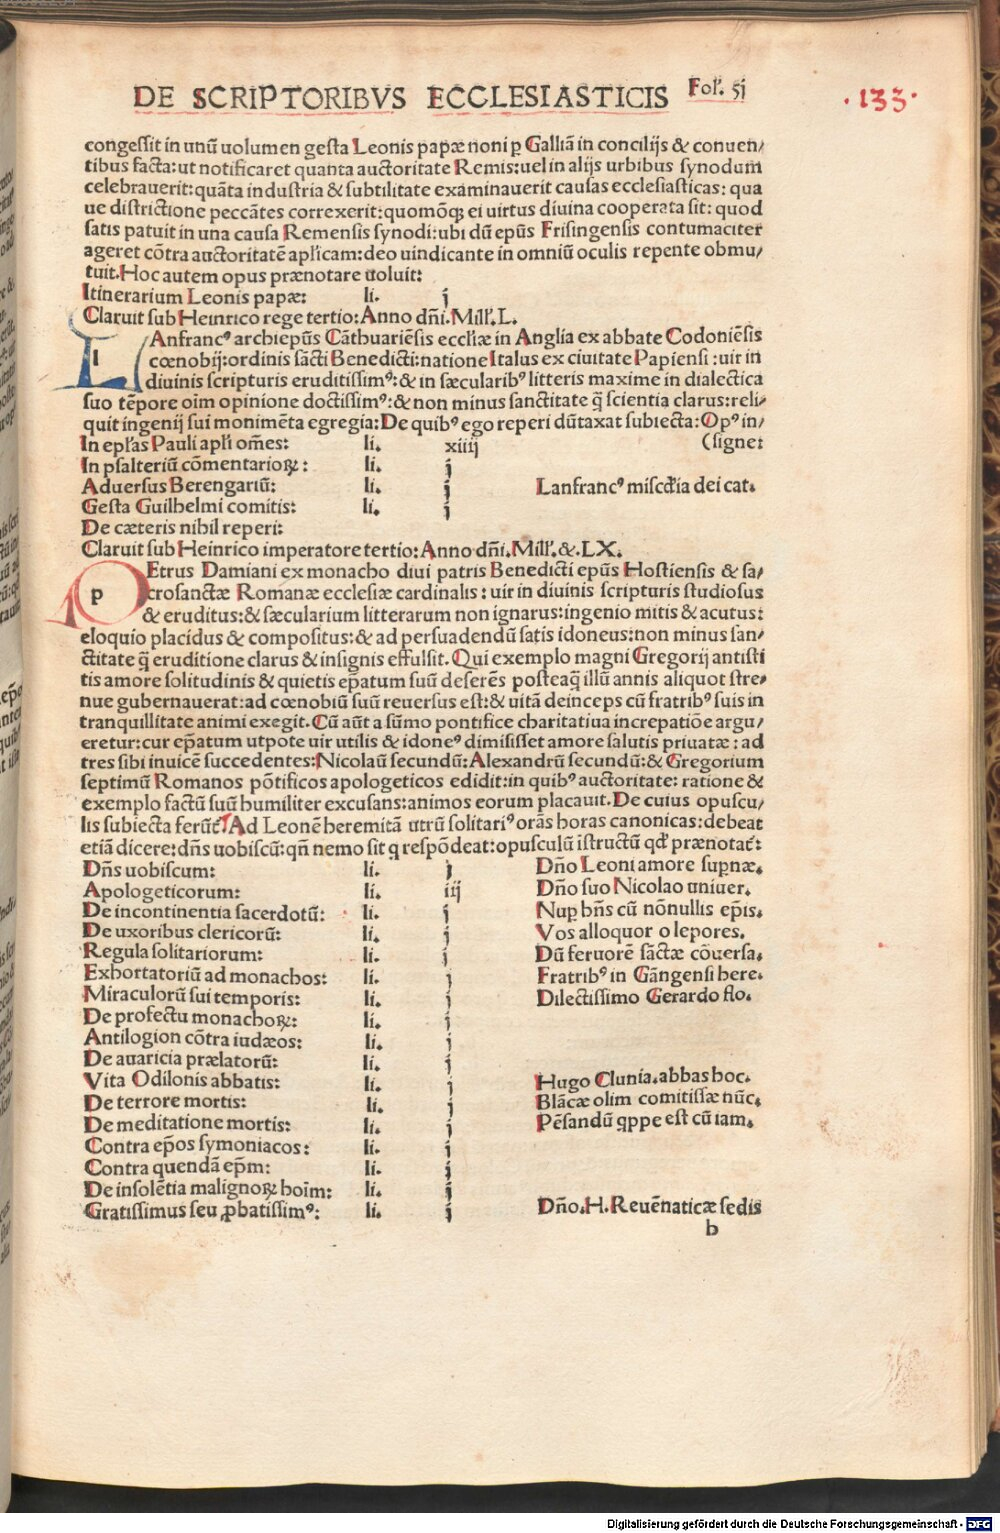 DE SCRIPTORIBVS ECCLESIASTICIS Fol'. 51
.133.
congessit in unū uolumen gesta Leonis papæ noni ꝑ Galliā in concilijs & conuen/
tibus facta: ut notificaret quanta auctoritate Remis: uel in alijs urbibus synodum
celebrauerit: quāta industria & subtilitate examinauerit causas ecclesiasticas: qua
ue districtione peccātes correxerit: quomōqꝫ ei uirtus diuina cooperata sit: quod
satis patuit in una causa Remensis synodi: ubi dū ep̄us Frisingensis contumaciter
ageret cōtra auctoritatē apl'icam: deo uindicante in omniū oculis repente obmu/
tuit. Hoc autem opus prænotare uoluit:
Itinerarium Leonis papæ: li. j
Claruit sub Heinrico rege tertio: Anno dn̄i. Mill'. L.
l Anfrancꝰ archiep̄us Cāthuariēsis eccl'iæ in Anglia ex abbate Codoniēsis
cœnobij: ordinis sācti Benedicti: natione Italus ex ciuitate Papiensi: uir in
diuinis scripturis eruditissimꝰ: & in sæcularibꝰ litteris maxime in dialectica
suo tēpore oim opinione doctissimꝰ: & non minus sanctitate q̄ scientia clarus: reli/
quit ingenij sui monimēta egregia: De quibꝰ ego reperi dūtaxat subiecta: Opꝰ in/
(signe:
In epl'as Pauli apl'i om̄es: li. xiiij
In psalteriū cōmentarioꝝ: li. j
Aduersus Berengariū: li. j Lanfrancꝰ misc̄dia dei cat.
Gesta Guilhelmi comitis: li. j
De cæteris nihil reperi:
Claruit sub Heinrico imperatore tertio: Anno dn̄i. Mill'. &. LX.
p Etrus Damiani ex monacho diui patris Benedicti ep̄us Hostiensis & sa/
crosanctæ Romanæ ecclesiæ cardinalis: uir in diuinis scripturis studiosus
& eruditus: & sæcularium litterarum non ignarus: ingenio mitis & acutus:
eloquio placidus & compositus: & ad persuadendū satis idoneus: non minus san/
ctitate q̄ eruditione clarus & insignis effulsit. Qui exemplo magni Gregorij antisti
tis amore solitudinis & quietis ep̄atum suū deserēs posteaq̄ illū annis aliquot stre/
nue gubernauerat: ad cœnobiū suū reuersus est: & uitā deinceps cū fratribꝰ suis in
tranquillitate animi exegit. Cū aūt a sūmo pontifice charitatiua increpatiōe argu/
eretur: cur ep̄atum utpote uir utilis & idoneꝰ dimisisset amore salutis priuatæ: ad
tres sibi inuicē succedentes: Nicolaū secundū: Alexandrū secundū: & Gregorium
septimū Romanos pōtificos apologeticos edidit: in quibꝰ auctoritate: ratione &
exemplo factū suū humiliter excusans: animos eorum placauit. De cuius opuscu/
lis subiecta ferūt̄ Ad Leonē heremitā utrū solitariꝰ orās horas canonicas: debeat
etiā dicere: dn̄s uobiscū: qn̄ nemo sit q respōdeat: opusculū īstructū qd' prænotat̄:
Dn̄s uobiscum: li. j Dn̄o Leoni amore suꝑnæ.
Apologeticorum: li. iij Dn̄o suo Nicolao uniuer.
De incontinentia sacerdotū: li. j Nuꝑ hn̄s cū nōnullis ep̄is.
De uxoribus clericorū: li. j Vos alloquor o lepores.
Regula solitariorum: li. j Dū feruorē sāctæ cōuersa.
Exhortatoriū ad monachos: li. j Fratribꝰ in Gāngensi here.
Miraculorū sui temporis: li. j Dilectissimo Gerardo flo.
De profectu monachoꝝ: li. j
Antilogion cōtra iudæos: li. j
De auaricia prælatorū: li. j
Vita Odilonis abbatis: li. j Hugo Clunia. abbas hoc.
De terrore mortis: li. j Blācæ olim comitissæ nūc.
De meditatione mortis: li. j Pēsandū qppe est cū iam.
Contra ep̄os symoniacos: li. j
Contra quendā ep̄m: li. j
De insolētia malignoꝝ hoīm: li. j
Gratissimus seu ꝓbatissimꝰ: li. j Dn̄o. H. Reuēnaticæ sedis
b
Digitalisierung gefördert durch die Deutsche Forschungsgemeinschaft - DFG